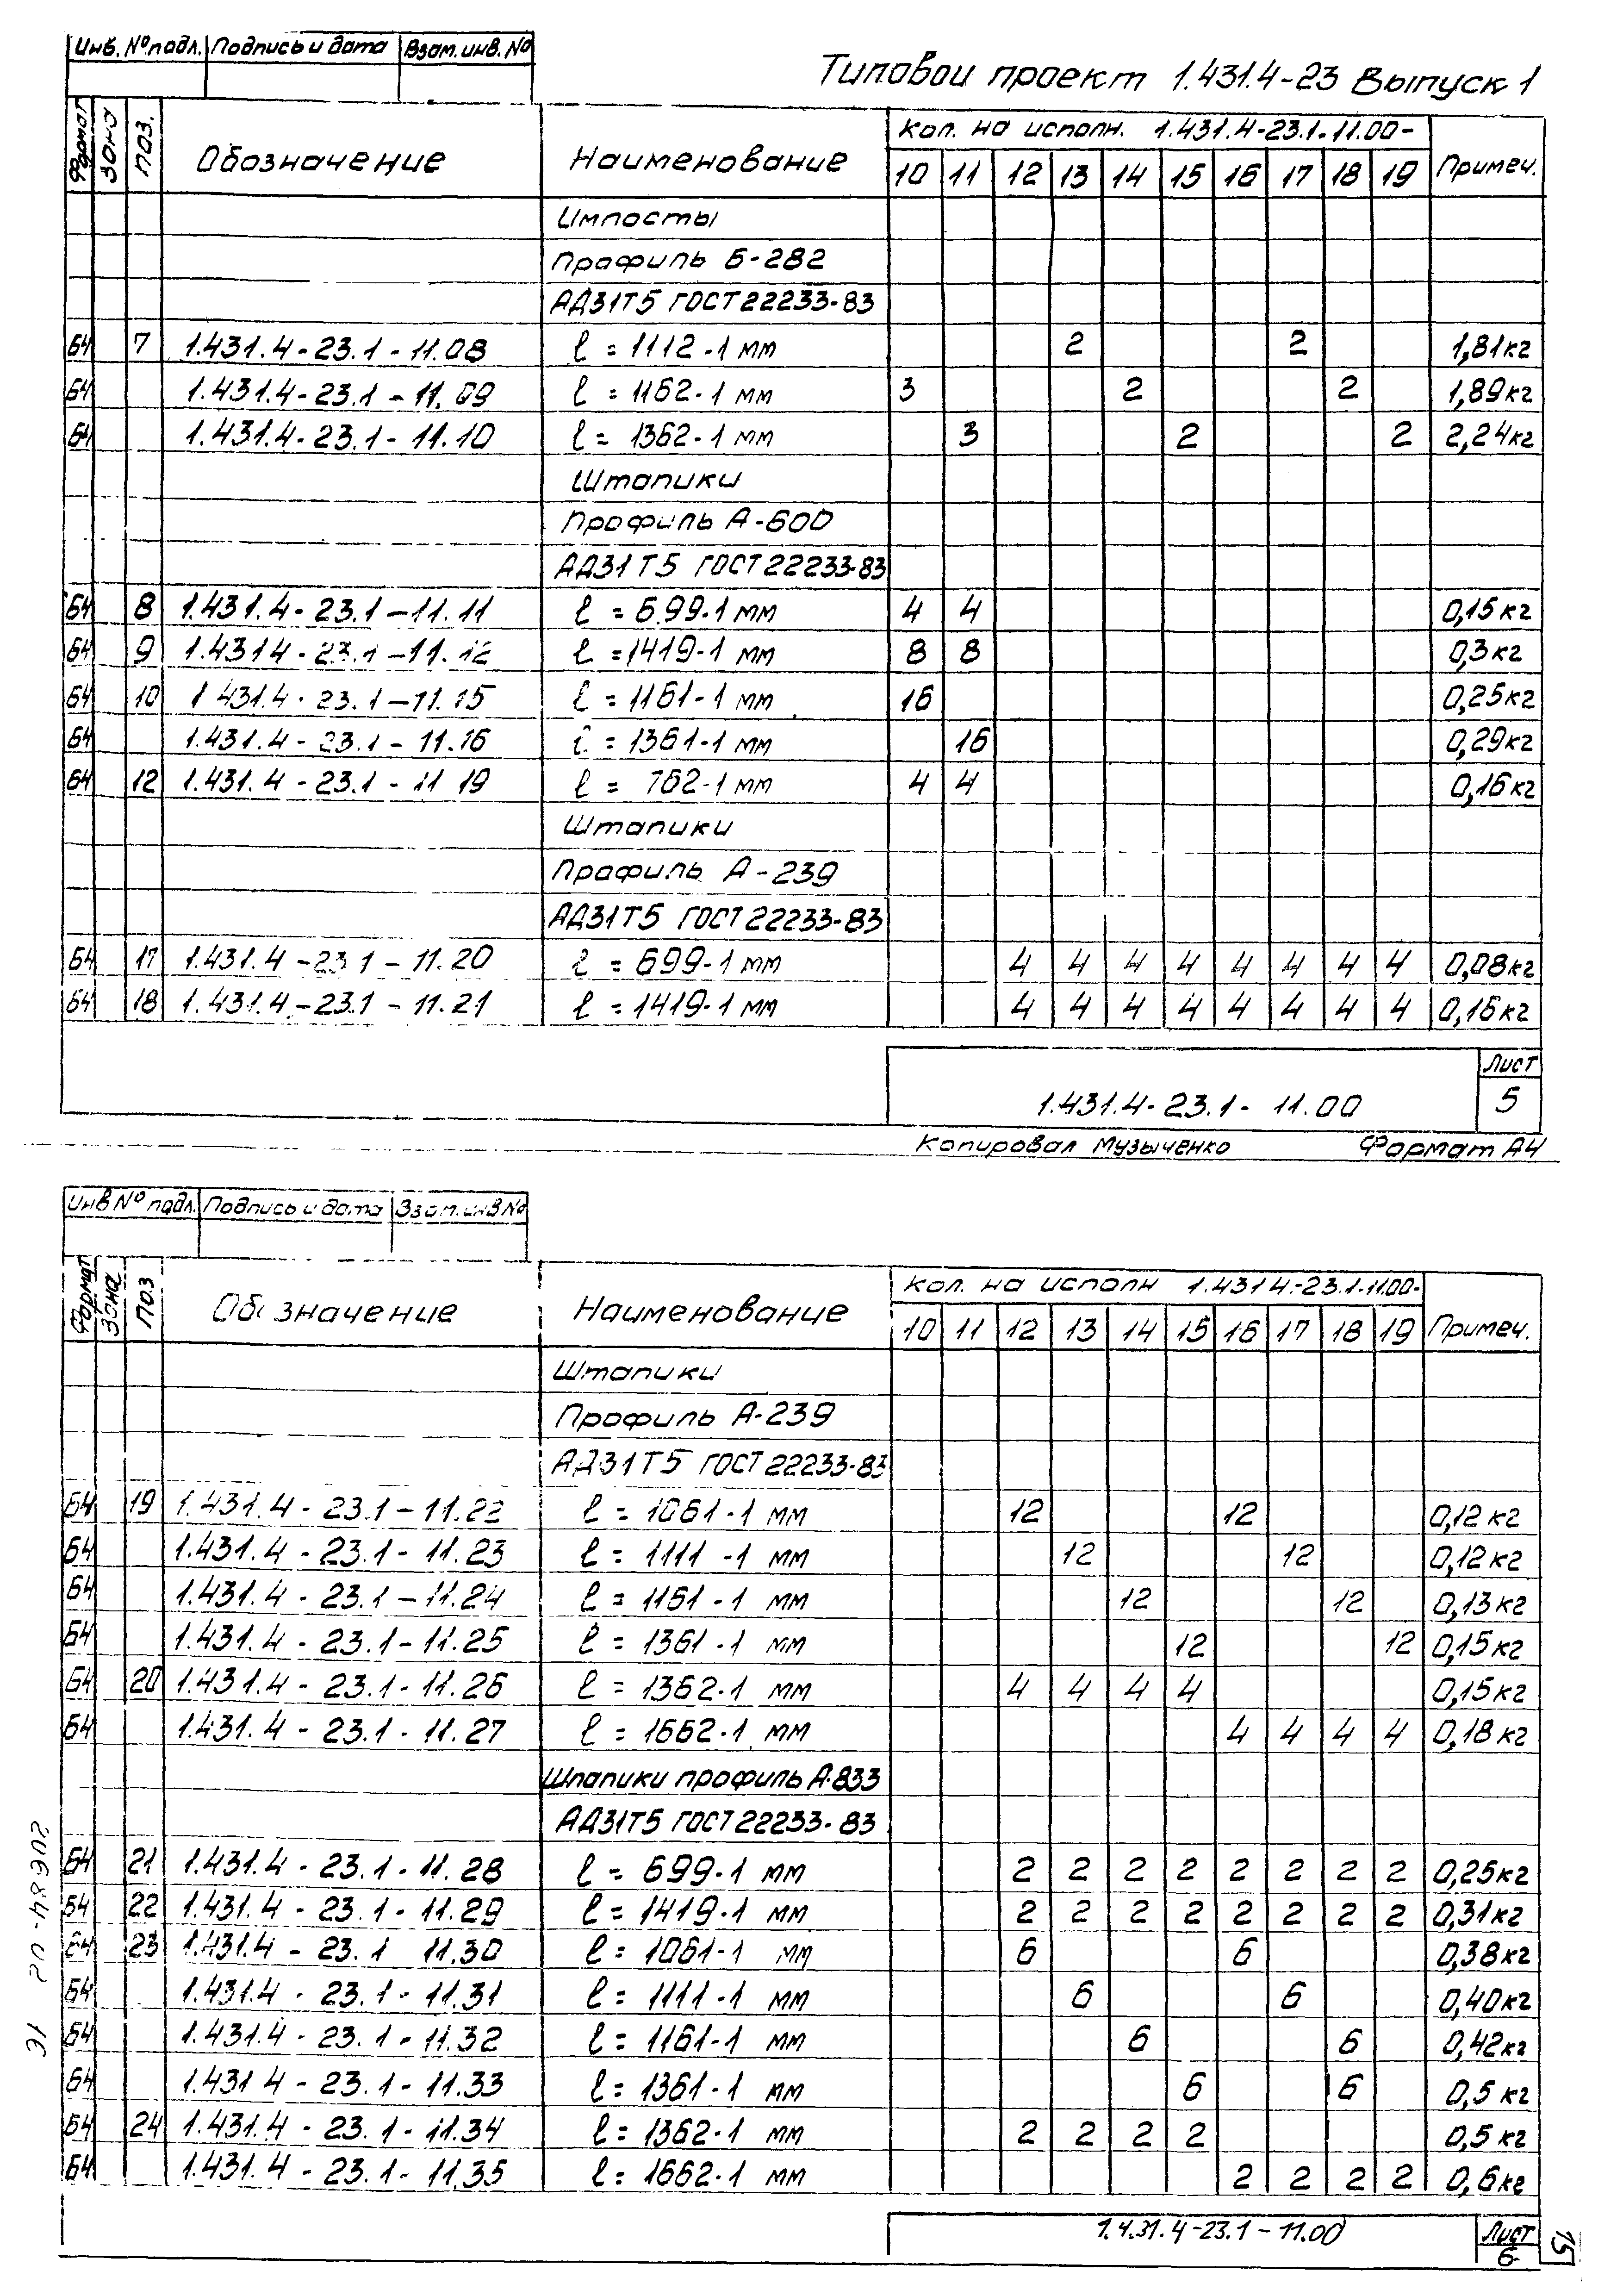 Инв. № подл. Подпись и дата Взам. инв. №
Типовой проект 1.431.4-23 Выпуск 1
Формат Зона Поз. Обозначение Наименование Кол. на исполн. 1.431.4-23.1-11.00- Примеч.
10 11 12 13 14 15 16 17 18 19
Импосты
Профиль Б-282
АД31Т5 ГОСТ 22233-83
Б4 7 1.431.4-23.1-11.08 ℓ = 1112-1 мм 2 2 1,81кг
Б4 1.431.4-23.1-11.09 ℓ = 1162-1 мм 3 2 2 1,89кг
Б4 1.431.4-23.1-11.10 ℓ = 1362-1 мм 3 2 2 2,24кг
Штапики
Профиль А-600
АД31Т5 ГОСТ 22233-83
Б4 8 1.431.4-23.1-11.11 ℓ = 699-1 мм 4 4 0,15кг
Б4 9 1.431 4-23.1-11.12 ℓ =1419-1 мм 8 8 0,3кг
Б4 10 1 431.4-23.1-11.15 ℓ = 1161-1 мм 16 0,25кг
Б4 1.431.4-23.1-11.16 ℓ = 1361-1 мм 16 0,29кг
Б4 12 1.431.4-23.1-11 19 ℓ = 762-1 мм 4 4 0,16кг
Штапики
Профиль А-239
АД31Т5 ГОСТ 22233-83
Б4 17 1.431.4-23.1-11.20 ℓ = 699-1 мм 4 4 4 4 4 4 4 4 0,08кг
Б4 18 1.431.4-23.1-11.21 ℓ = 1419-1 мм 4 4 4 4 4 4 4 4 0,16кг
Лист
1.431.4-23.1-11.00 5
Копировал Музыченко Формат А4
Инв № подл. Подпись и дата Взам. инв №
Формат Зона Поз Обозначение Наименование Кол. на исполн 1.431 4-23.1-11.00- Примеч.
10 11 12 13 14 15 16 17 18 19
Штапики
Профиль А-239
АД31Т5 ГОСТ 22233-83
Б4 19 1.431.4-23.1-11.22 ℓ = 1061-1 мм 12 12 0,12кг
Б4 1.431.4-23.1-11.23 ℓ = 1111-1 мм 12 12 0,12кг
Б4 1.431.4-23.1-11.24 ℓ = 1161-1 мм 12 12 0,13кг
Б4 1.431.4-23.1-11.25 ℓ = 1361-1 мм 12 12 0,15кг
Б4 20 1.431.4-23.1-11.26 ℓ = 1362-1 мм 4 4 4 4 0,15кг
Б4 1.431.4-23.1-11.27 ℓ = 1662-1 мм 4 4 4 4 0,18кг
Шпапики профиль А-833
АД31Т5 ГОСТ 22233-83
Б4 21 1.431.4-23.1-11.28 ℓ = 699-1 мм 2 2 2 2 2 2 2 2 0,25кг
Б4 22 1.431.4-23.1-11.29 ℓ = 1419-1 мм 2 2 2 2 2 2 2 2 0,31кг
Б4 23 1.431.4-23.1 11.30 ℓ = 1061-1 мм 6 6 0,38кг
Б4 1.431.4-23.1-11.31 ℓ = 1111-1 мм 6 6 0,40кг
Б4 1.431.4-23.1-11.32 ℓ = 1161-1 мм 6 6 0,42кг
Б4 1.431 4-23.1-11.33 ℓ = 1361-1 мм 6 6 0,5 кг
Б4 24 1.431.4-23.1-11.34 ℓ = 1362-1 мм 2 2 2 2 0,5 кг
Б4 1.431.4-23.1-11.35 ℓ = 1662-1 мм 2 2 2 2 0,6кг
Лист
1.431.4-23.1-11.00 6
15
20684-02 31